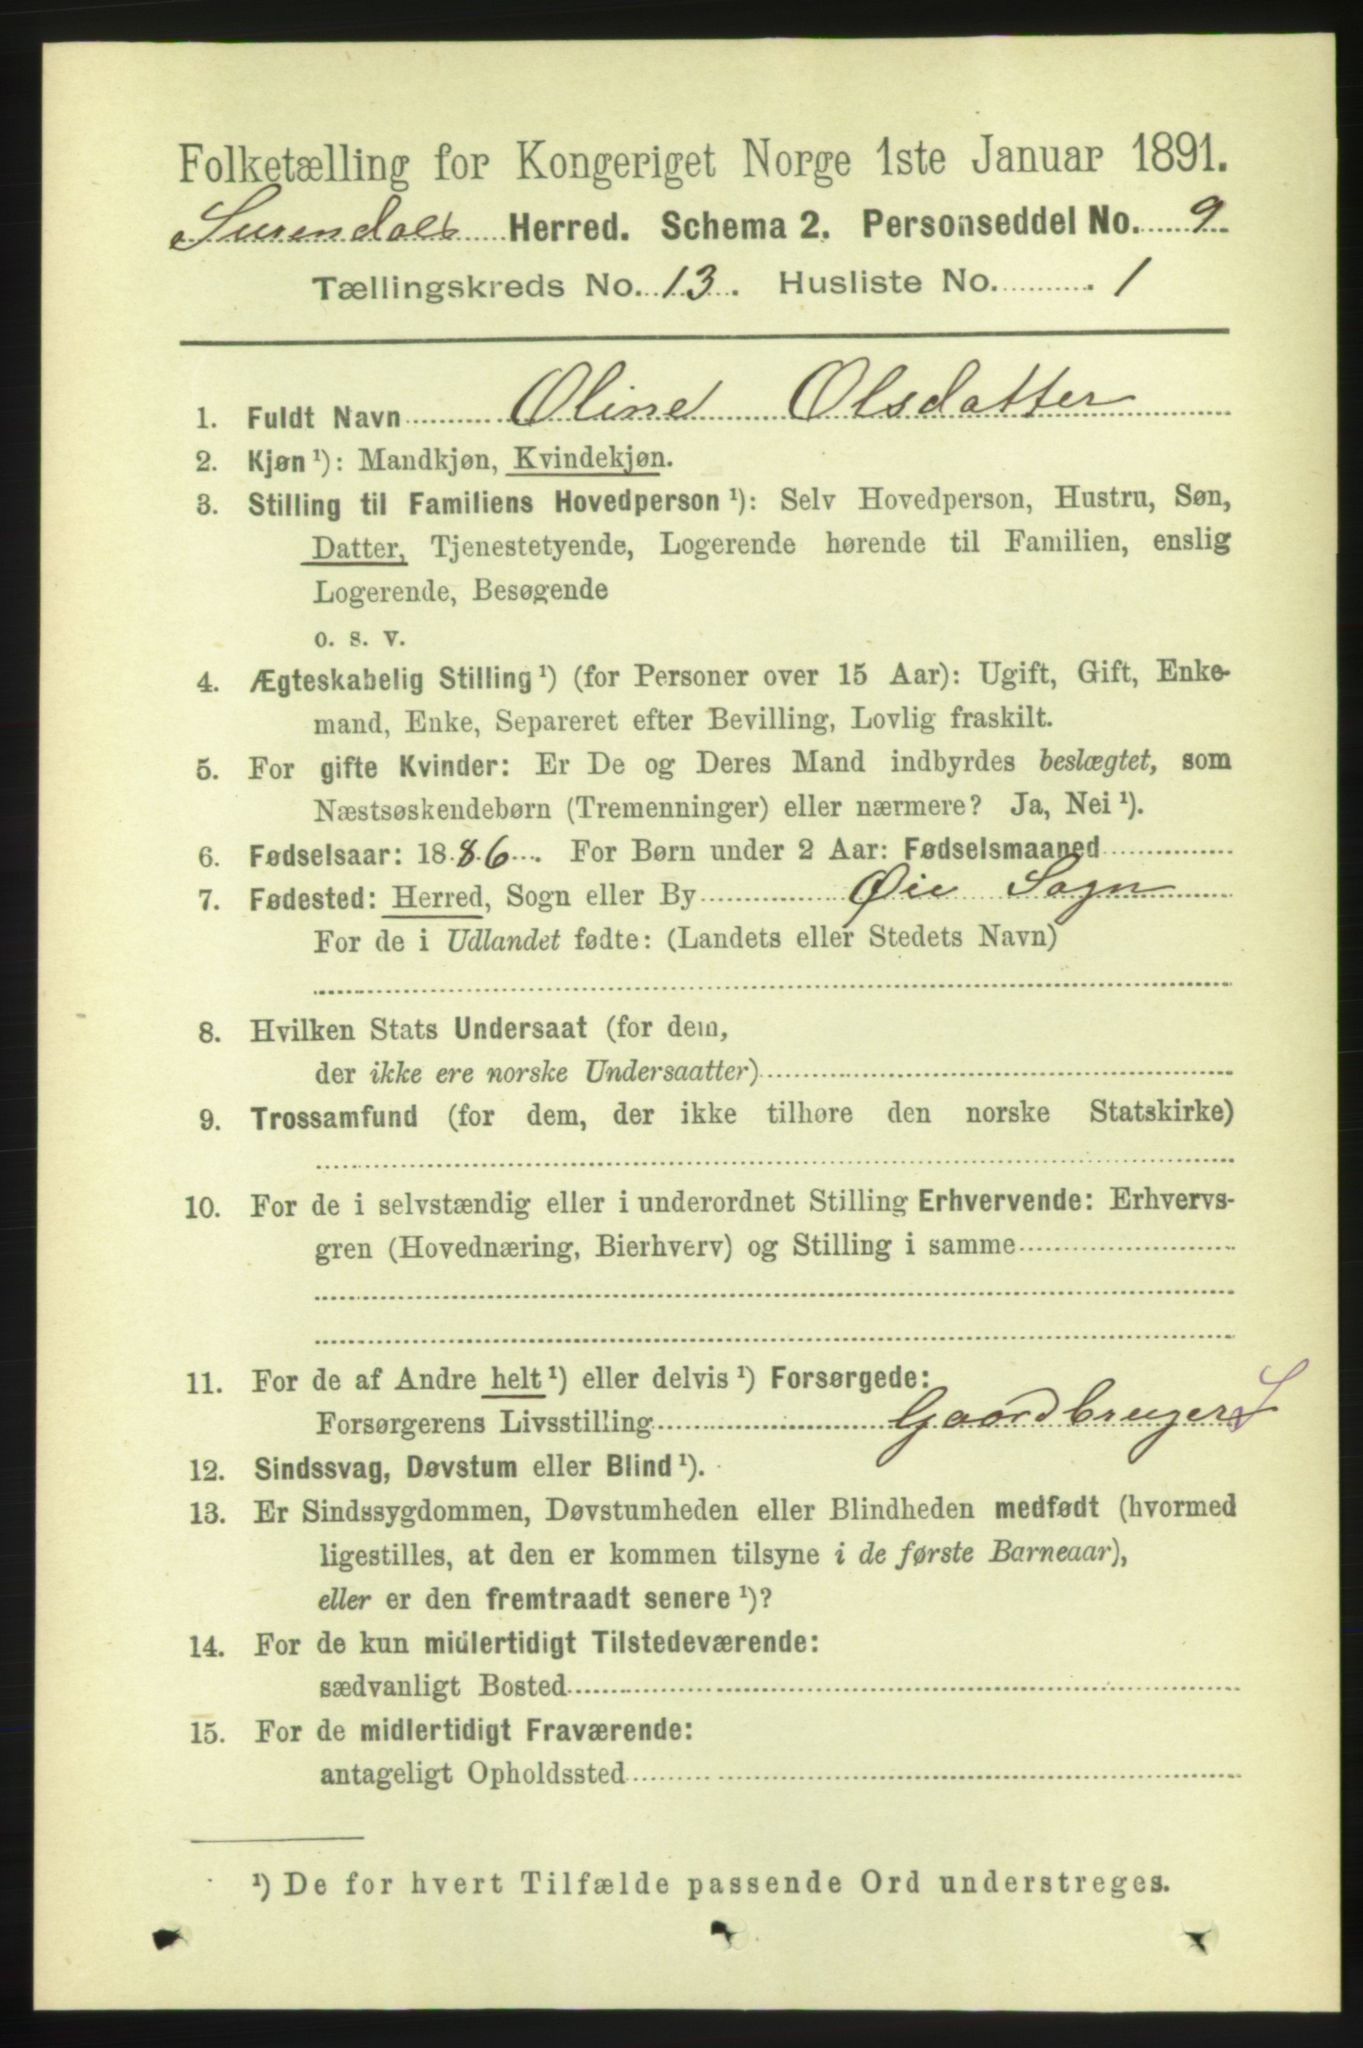 Folketælling for Kongeriget Norge 1ste Januar 1891.
Surendals Herred. Schema 2. Personseddel No. 9
Tællingskreds No. 13. Husliste No. 1
1. Fuldt Navn Oline Olsdatter
2. Kjøn ¹): Mandkjøn, Kvindekjøn.
3. Stilling til Familiens Hovedperson ¹): Selv Hovedperson, Hustru, Søn,
Datter, Tjenestetyende, Logerende hørende til Familien, enslig
Logerende, Besøgende
o. s. v.
4. Ægteskabelig Stilling ¹) (for Personer over 15 Aar): Ugift, Gift, Enke-
mand, Enke, Separeret efter Bevilling, Lovlig fraskilt.
5. For gifte Kvinder: Er De og Deres Mand indbyrdes beslægtet, som
Næstsøskendebørn (Tremenninger) eller nærmere? Ja, Nei ¹).
6. Fødselsaar: 1886. For Børn under 2 Aar: Fødselsmaaned
7. Fødested: Herred, Sogn eller By Øie Sogn
For de i Udlandet fødte: (Landets eller Stedets Navn)
8. Hvilken Stats Undersaat (for dem,
der ikke ere norske Undersaatter)
9. Trossamfund (for dem, der ikke tilhøre den norske Statskirke)
10. For de i selvstændig eller i underordnet Stilling Erhvervende: Erhvervs-
gren (Hovednæring, Bierhverv) og Stilling i samme
11. For de af Andre helt ¹) eller delvis ¹) Forsørgede:
Forsørgerens Livsstilling Gaardbruger S
12. Sindssvag, Døvstum eller Blind ¹).
13. Er Sindssygdommen, Døvstumheden eller Blindheden medfødt (hvormed
ligestilles, at den er kommen tilsyne i de første Barneaar),
eller er den fremtraadt senere ¹)?
14. For de kun midlertidigt Tilstedeværende:
sædvanligt Bosted
15. For de midlertidigt Fraværende:
antageligt Opholdssted
¹) De for hvert Tilfælde passende Ord understreges.